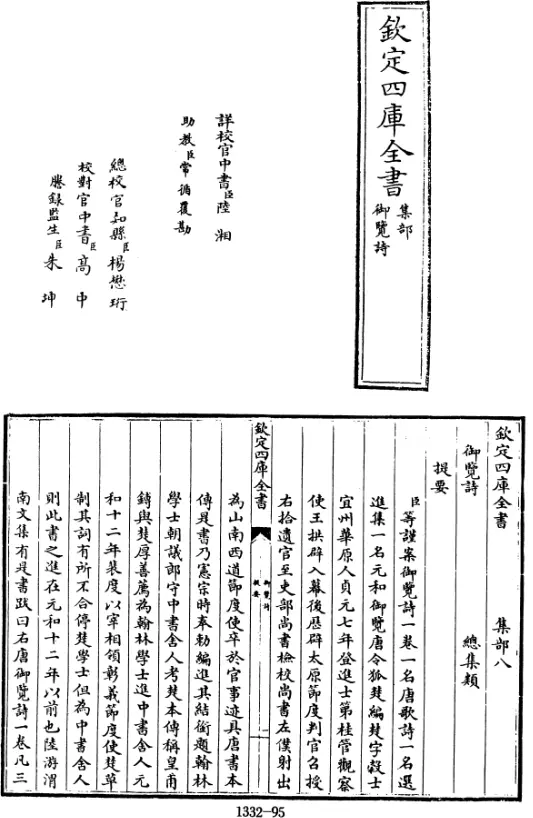 欽定四庫全書
集部
御覽詩
詳校官中書臣陸湘
助教臣常循覆勘
總校官知縣臣楊懋珩
校對官中書臣高中
謄錄監生臣朱坤
欽定四庫全書 集部八
御覽詩 總集類
提要
臣等謹案御覽詩一卷一名唐歌詩一名選
進集一名元和御覽唐令狐楚編楚字殻士
宜州華原人貞元七年登進士第桂管觀察
使王拱辟入幕後歴辟太原節度判官召授
右拾遺官至吏部尚書檢校尚書左僕射出
欽定四庫全書
御覽詩
提要
為山南西道節度使卒於官事迹具唐書本
傳是書乃憲宗時奉勅編進其結銜題翰林
學士朝議郎守中書舍人考楚本傳稱皇甫
鎛與楚厚善薦為翰林學士進中書舍人元
和十二年裴度以宰相領彰義節度使楚草
制其詞有所不合停楚學士但為中書舍人
則此書之進在元和十二年以前也陸游渭
南文集有是書跋曰右唐御覽詩一卷凡三
1332-95